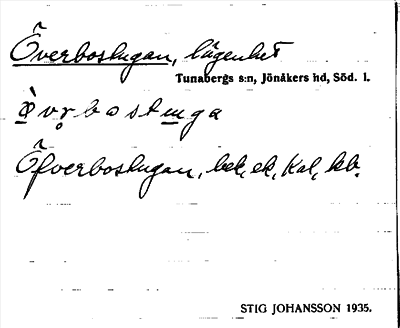 Överbostugan, lägenhet
Tunabergs s:n, Jönåkers hd, Söd. l.
övrbostuga
Öfverbostugan, bek, ek, Kal, kb.
STIG JOHANSSON 1935.